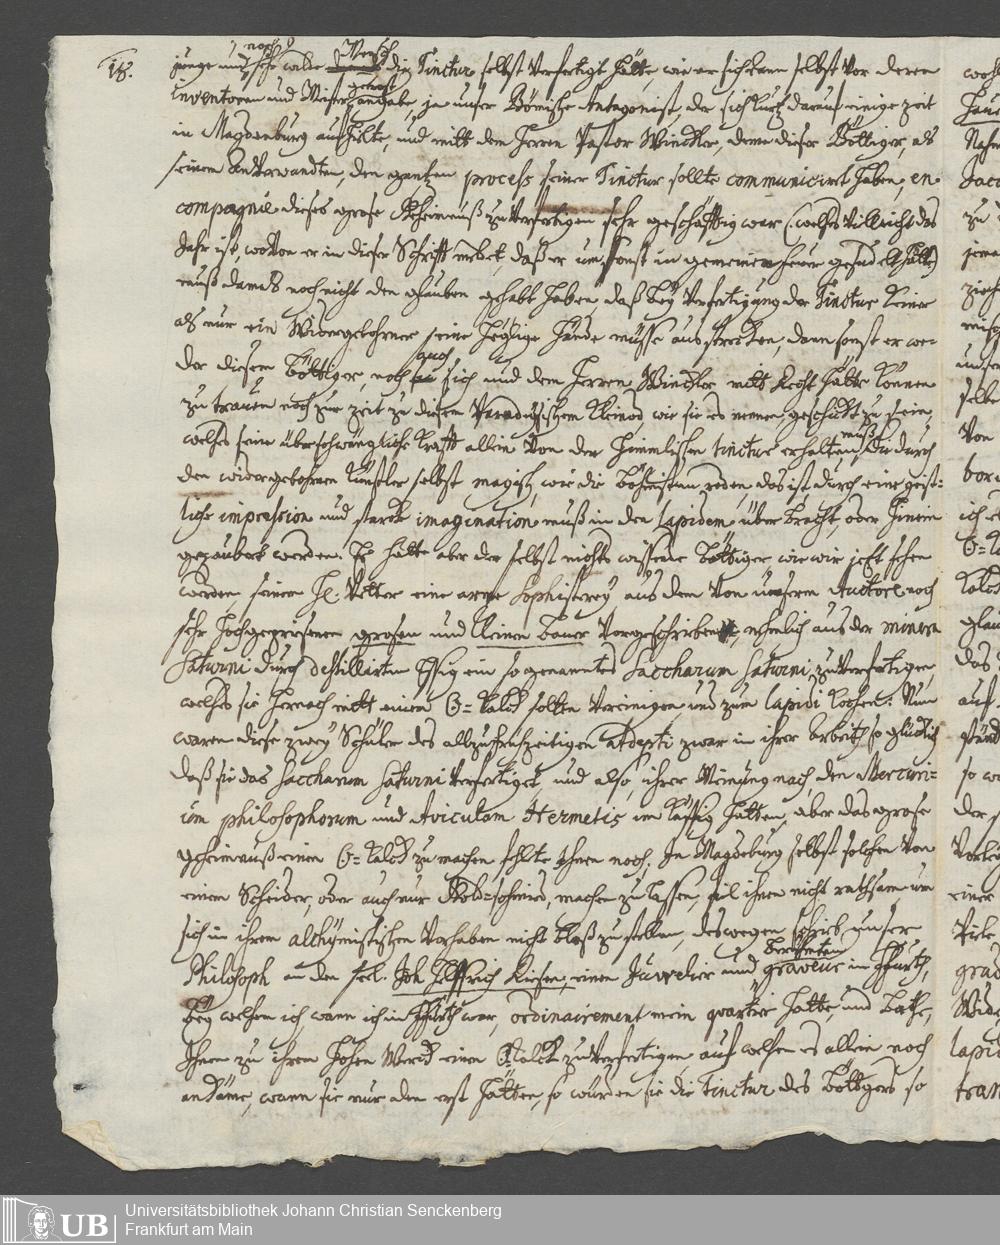 18.
noch Mensch
junge und sehr wilde die Tinctur selbst verfertigt hätte, wie er sich dann selbst vor deren
inventoren und Meister angabe, ja unser Bömische Antagonist, der sich kurtz darauf einige zeit
in Magdenburg aufhielte, und mitt dem Herren Pastor Winckler, deme dieser Böttiger, als
seinem Anverwandten, den gantzen process seiner Tinctur sollte communicirt haben, en
compagnie dieses grose Geheimnuß zu verfertigen sehr geschäfftig war (: welches villeicht das
Jahr ist, wovon er in dieser Schrifft meldet, daß er umsonst in gemeinem feuer gesudelt hätte)
muß damals noch nicht den glauben gehabt haben, daß bey Verfertigung der Tinctur keiner
als nur ein Widergebohrner seine heylige Hände müsse ausstrecken, dann sonst er we-
auch
der diesem Böttiger, noch sich und dem Herren Winckler mitt Recht hätte können
zu trauen noch zur zeit zu diesem Paradysischem Kleinod, wie sie es nennen, geschickt zu sein,
muß
welches seine überschwängliche Krafft allein von der himmlischen tinctur erhalten, die durch
den widergebohrnen Künstler selbst magisch, wie die Böhmisten reden, das ist durch eine geist-
liche impression und starcke imagination muß in den lapidem über bracht, oder hinein
gezaubert werden. Es hatte aber der selbst nichts wissende Böttiger wie wir jetzt sehen
werden, seinem H. Vetter eine arge Sophisterey aus dem von unserem Auctore noch
sehr hochgepriesenen grosen und kleinen Bauer vorgeschrieben, nehmlich aus der minera
Saturni durch destillirten Essig ein so genanntes Saccharum Saturni zu verfertigen,
welches sie hernach mitt einem Kalck sollten vereinigen, und zum lapidi kochen. Nun
waren diese zwey Schüler des allzufrühzeitigen Adepti zwar in ihrer Arbeit so glücklich
daß sie das Saccharum Saturni verfertiget, und also, ihrer Meinung nach, den Mercuri-
um philosophorum und Aviculam Hermetis im Käffig hatten, aber das grose
geheimnuß einen Kalck zu machen fehlte ihnen noch. In Magdeburg selbst solchen von
einem Scheider, oder auch nur Goldschmied, machen zu lassen, fiel ihnen nicht rathsam, um
sich in ihrem alchymistischen Vorhaben nicht bloß zu stellen, deswegen schrieb unser
berühmten
Philosoph an den seel. Joh. Helffrich Riesen, einen Juwelier und graveur in Ffurth,
bey welchem ich, wann ich in Fffurth war, ordinairement mein quartier hatte, und bathe,
ihnen zu ihrem hohen Werck einen Kalck zu verfertigen, auf welchen es allein noch
ankäme, wann sie nur den erst hätten, so würden sie die Tinctur des Böttgers so
UB
Universitätsbibliothek Johann Christian Senckenberg
Frankfurt am Main